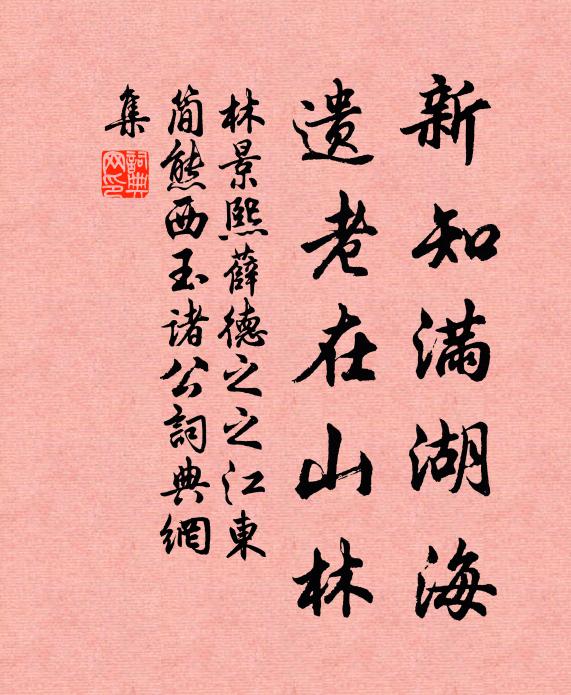 新知滿湖海
遗老在山林
林景熙薛德之之江東
简熊西玉諸公詞典網
集
詞典
网印